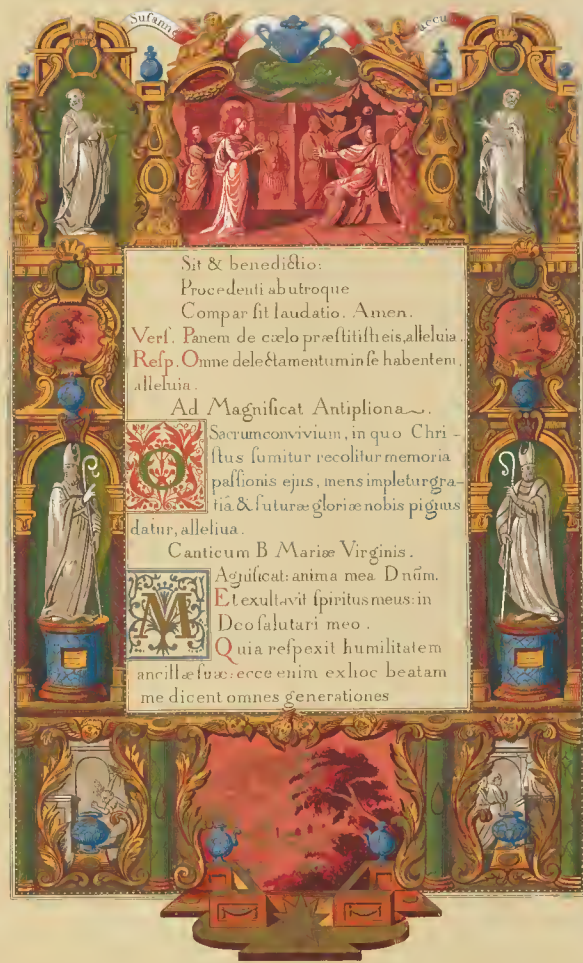 Susanne accu
Sit & benedictio:
Procedenti ab utroque
Compar sit laudatio. Amen.
Vers. Panem de cælo præstitisti eis, alleluia.
Resp. Omne delectamentum in se habentem,
alleluia.
Ad Magnificat Antiphona~.
O Sacrum convivium, in quo Chri-
stus sumitur recolitur memoria
passionis ejus, mens impletur gra-
tiâ & futuræ gloriæ nobis pignus
datur, alleliua.
Canticum B Mariæ Virginis.
MAgnificat: anima mea Dnūm.
Et exultavit spiritus meus: in
Deo salutari meo.
Quia respexit humilitatem
ancillæ suæ: ecce enim ex hoc beatam
me dicent omnes generationes